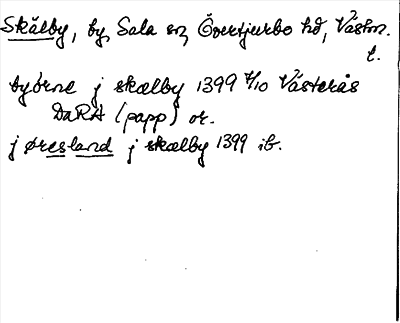 Skälby, by, Sala sn, Övertjurbo hd, Västm.
l.
byörne j skælby 1399 4/10 Västerås
DaRA (papp) or.
j øresland j skælby 1399 ib.